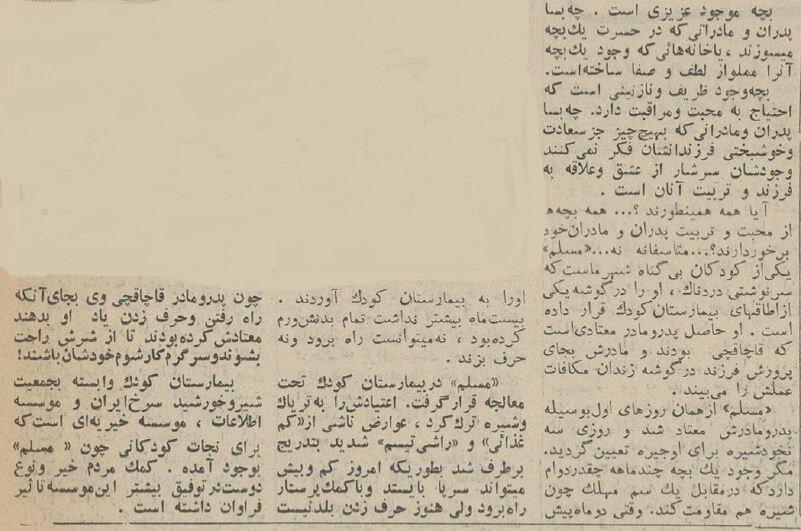 بچه موجود عزیزی است . چه بسا
پدران و مادرانی که در حسرت یك بچه
میسوزند ، یاخانه‌هائی که وجود یك بچه
آنرا مملواز لطف و صفا ساخته است.
بچه وجود ظریف ونازنینی است که
احتیاج به محبت ومراقبت دارد. چه بسا
پدران ومادرانی که بهیچ چیز جز سعادت
وخوشبختی فرزندانشان فکر نمی کنند
وجودشان سرشار از عشق وعلاقه به
فرزند و تربیت آنان است .
آیا همه همینطورند ؟... همه بچه‌ها
از محبت و تربیت پدران و مادران خود
برخوردارند؟...متاسفانه نه...«مسلم»
یکی از کودکان بی گناه شهر ماست که
سرنوشتی دردناك ، او را در گوشه یکی
ازاطاقهای بیمارستان کودك قرار داده
است . او حاصل پدرومادر معتادی است
که قاچاقچی بودند و مادرش بجای
پرورش فرزند درگوشه زندان مکافات
عملش را می‌بیند .
«مسلم» ازهمان روزهای اول بوسیله
پدرومادرش معتاد شد و روزی سه
نخودشیره برای اوجیره تعیین گردید.
مگر وجود یك بچه چندماهه چقدردوام
داردکه درمقابل یك سم مهلك چون
شیره هم مقاومت کند. وقتی دوماه پیش
اورا به بیمارستان کودك آوردند .
بیست ماه بیشتر نداشت تمام بدنش ورم
کرده بود ، نه میتوانست راه برود ونه
حرف بزند .
«مسلم» دربیمارستان کودك تحت
معالجه قرار گرفت. اعتیادش را به تریاك
وشیره ترك کرد ، عوارض ناشی از «کم
غذائی» و «راشی تیسم» شدید بتدریج
برطرف شد بطوریکه امروز کم وبیش
میتواند سرپا بایستد وباکمك پرستار
راه برود ولی هنوز حرف زدن بلدنیست
چون پدرومادر قاچاقچی وی بجای آنکه
راه رفتن وحرف زدن یاد او بدهند
معتادش کرده بودند تا از شرش راحت
بشوند وسرگرم کارشوم خودشان باشند!
بیمارستان کودك وابسته بجمعیت
شیروخورشید سرخ ایران و موسسه
اطلاعات ، موسسه خیریه‌ای است که
برای نجات کودکانی چون « مسلم»
بوجود آمده . کمك مردم خیر ونوع
دوست در توفیق بیشتر این موسسه تاثیر
فراوان داشته است .